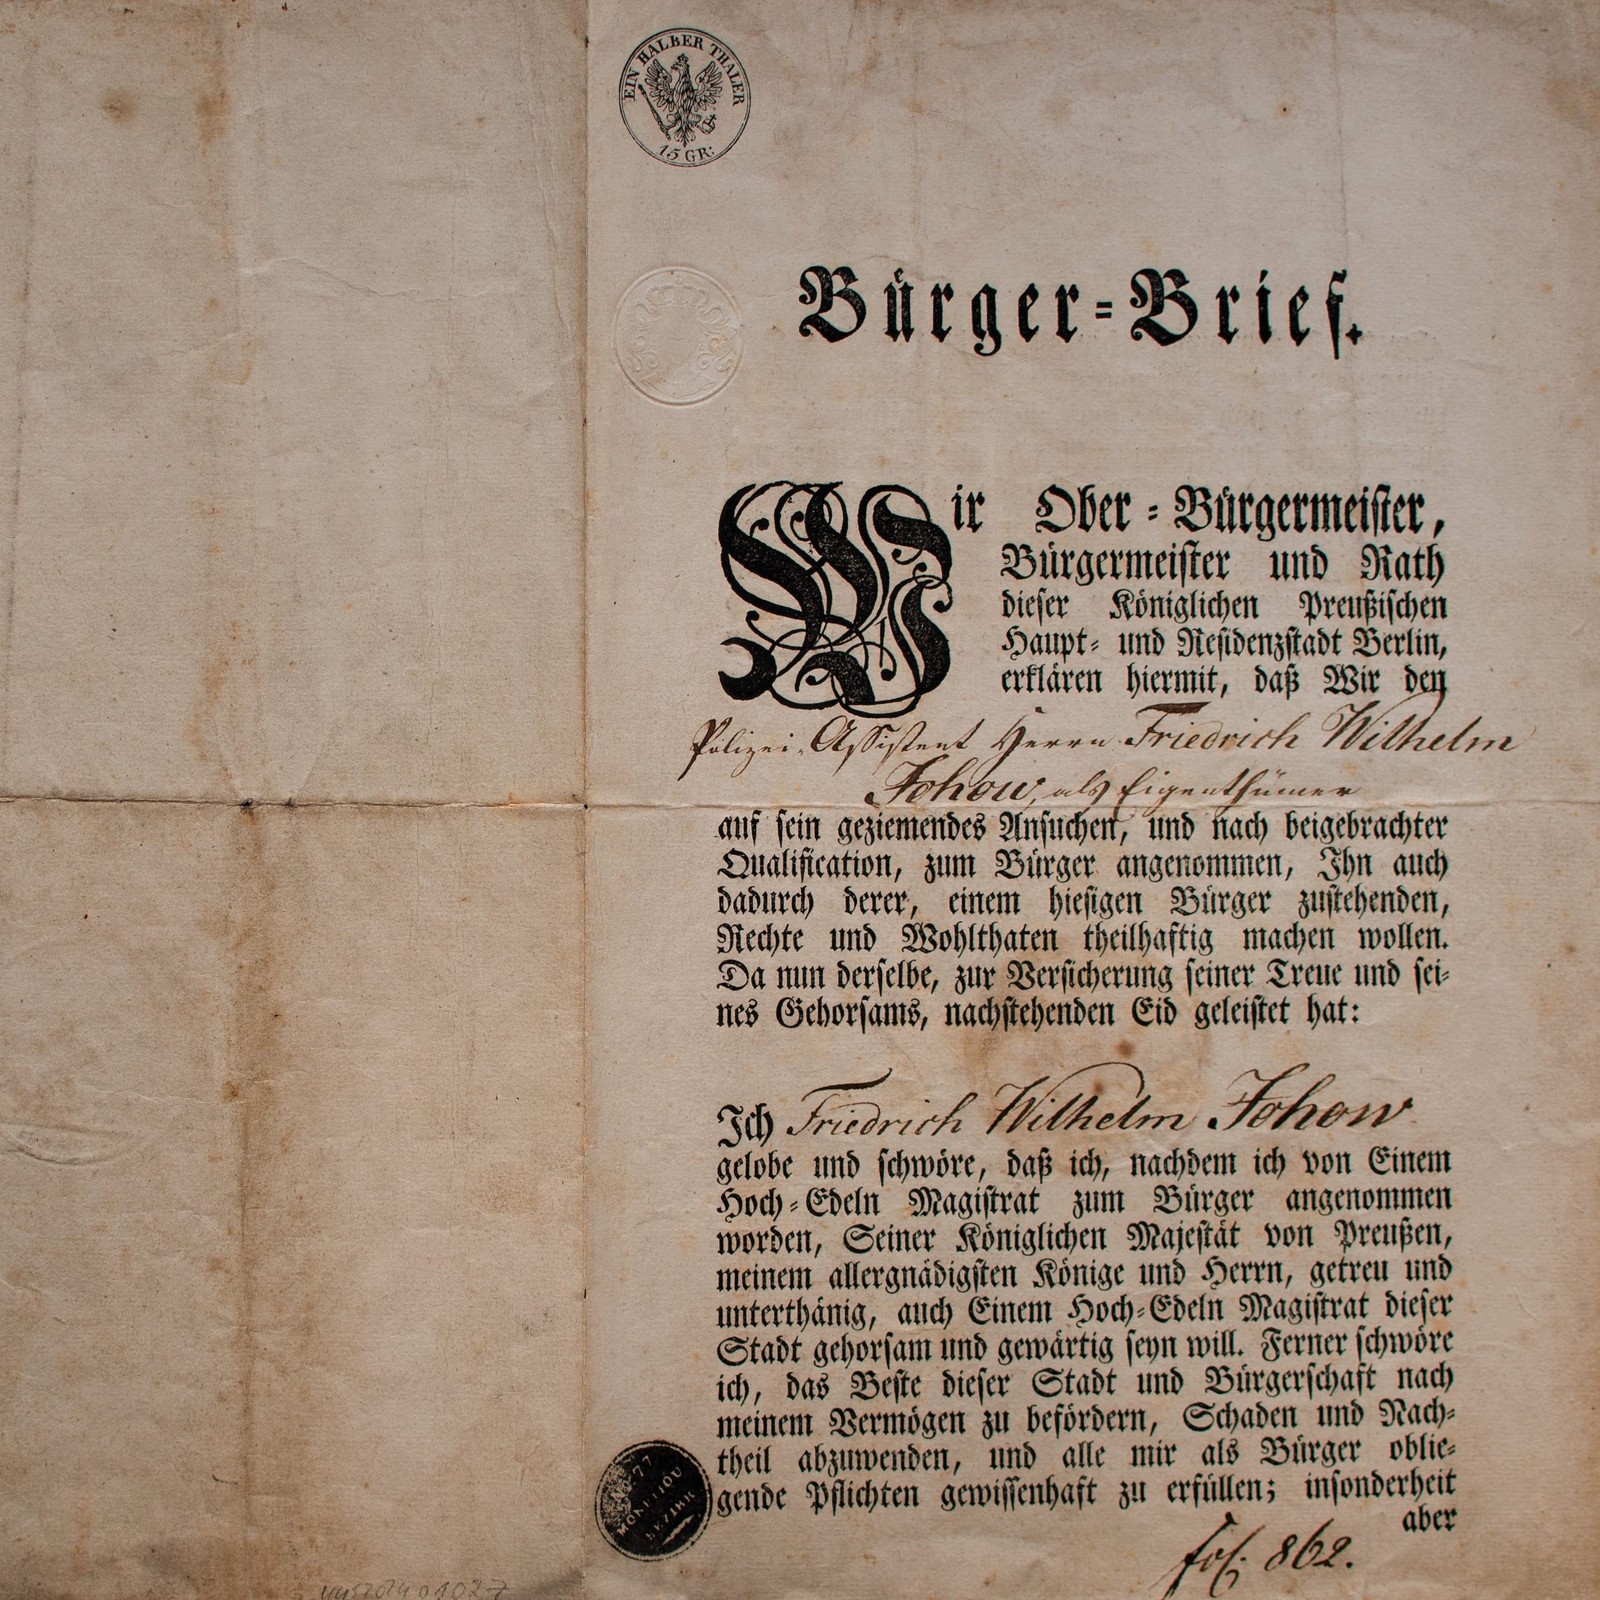 EIN HALBER THALER
15 GR:
Bürger-Brief.
Wir Ober-Bürgermeister,
Bürgermeister und Rath
dieser Königlichen Preußischen
Haupt- und Residenzstadt Berlin,
erklären hiermit, daß Wir den
Polizei-Assistent Herrn Friedrich Wilhelm
Johow, als Eigenthümer
auf sein geziemendes Ansuchen, und nach beigebrachter
Qualification, zum Bürger angenommen, Ihn auch
dadurch derer, einem hiesigen Bürger zustehenden,
Rechte und Wohlthaten theilhaftig machen wollen.
Da nun derselbe, zur Versicherung seiner Treue und sei-
nes Gehorsams, nachstehenden Eid geleistet hat:
Ich Friedrich Wilhelm Johow
gelobe und schwöre, daß ich, nachdem ich von Einem
Hoch-Edeln Magistrat zum Bürger angenommen
worden, Seiner Königlichen Majestät von Preußen,
meinem allergnädigsten Könige und Herrn, getreu und
unterthänig, auch Einem Hoch-Edeln Magistrat dieser
Stadt gehorsam und gewärtig seyn will. Ferner schwöre
ich, das Beste dieser Stadt und Bürgerschaft nach
meinem Vermögen zu befördern, Schaden und Nach-
theil abzuwenden, und alle mir als Bürger oblie-
gende Pflichten gewissenhaft zu erfüllen; insonderheit
aber
fol. 862.